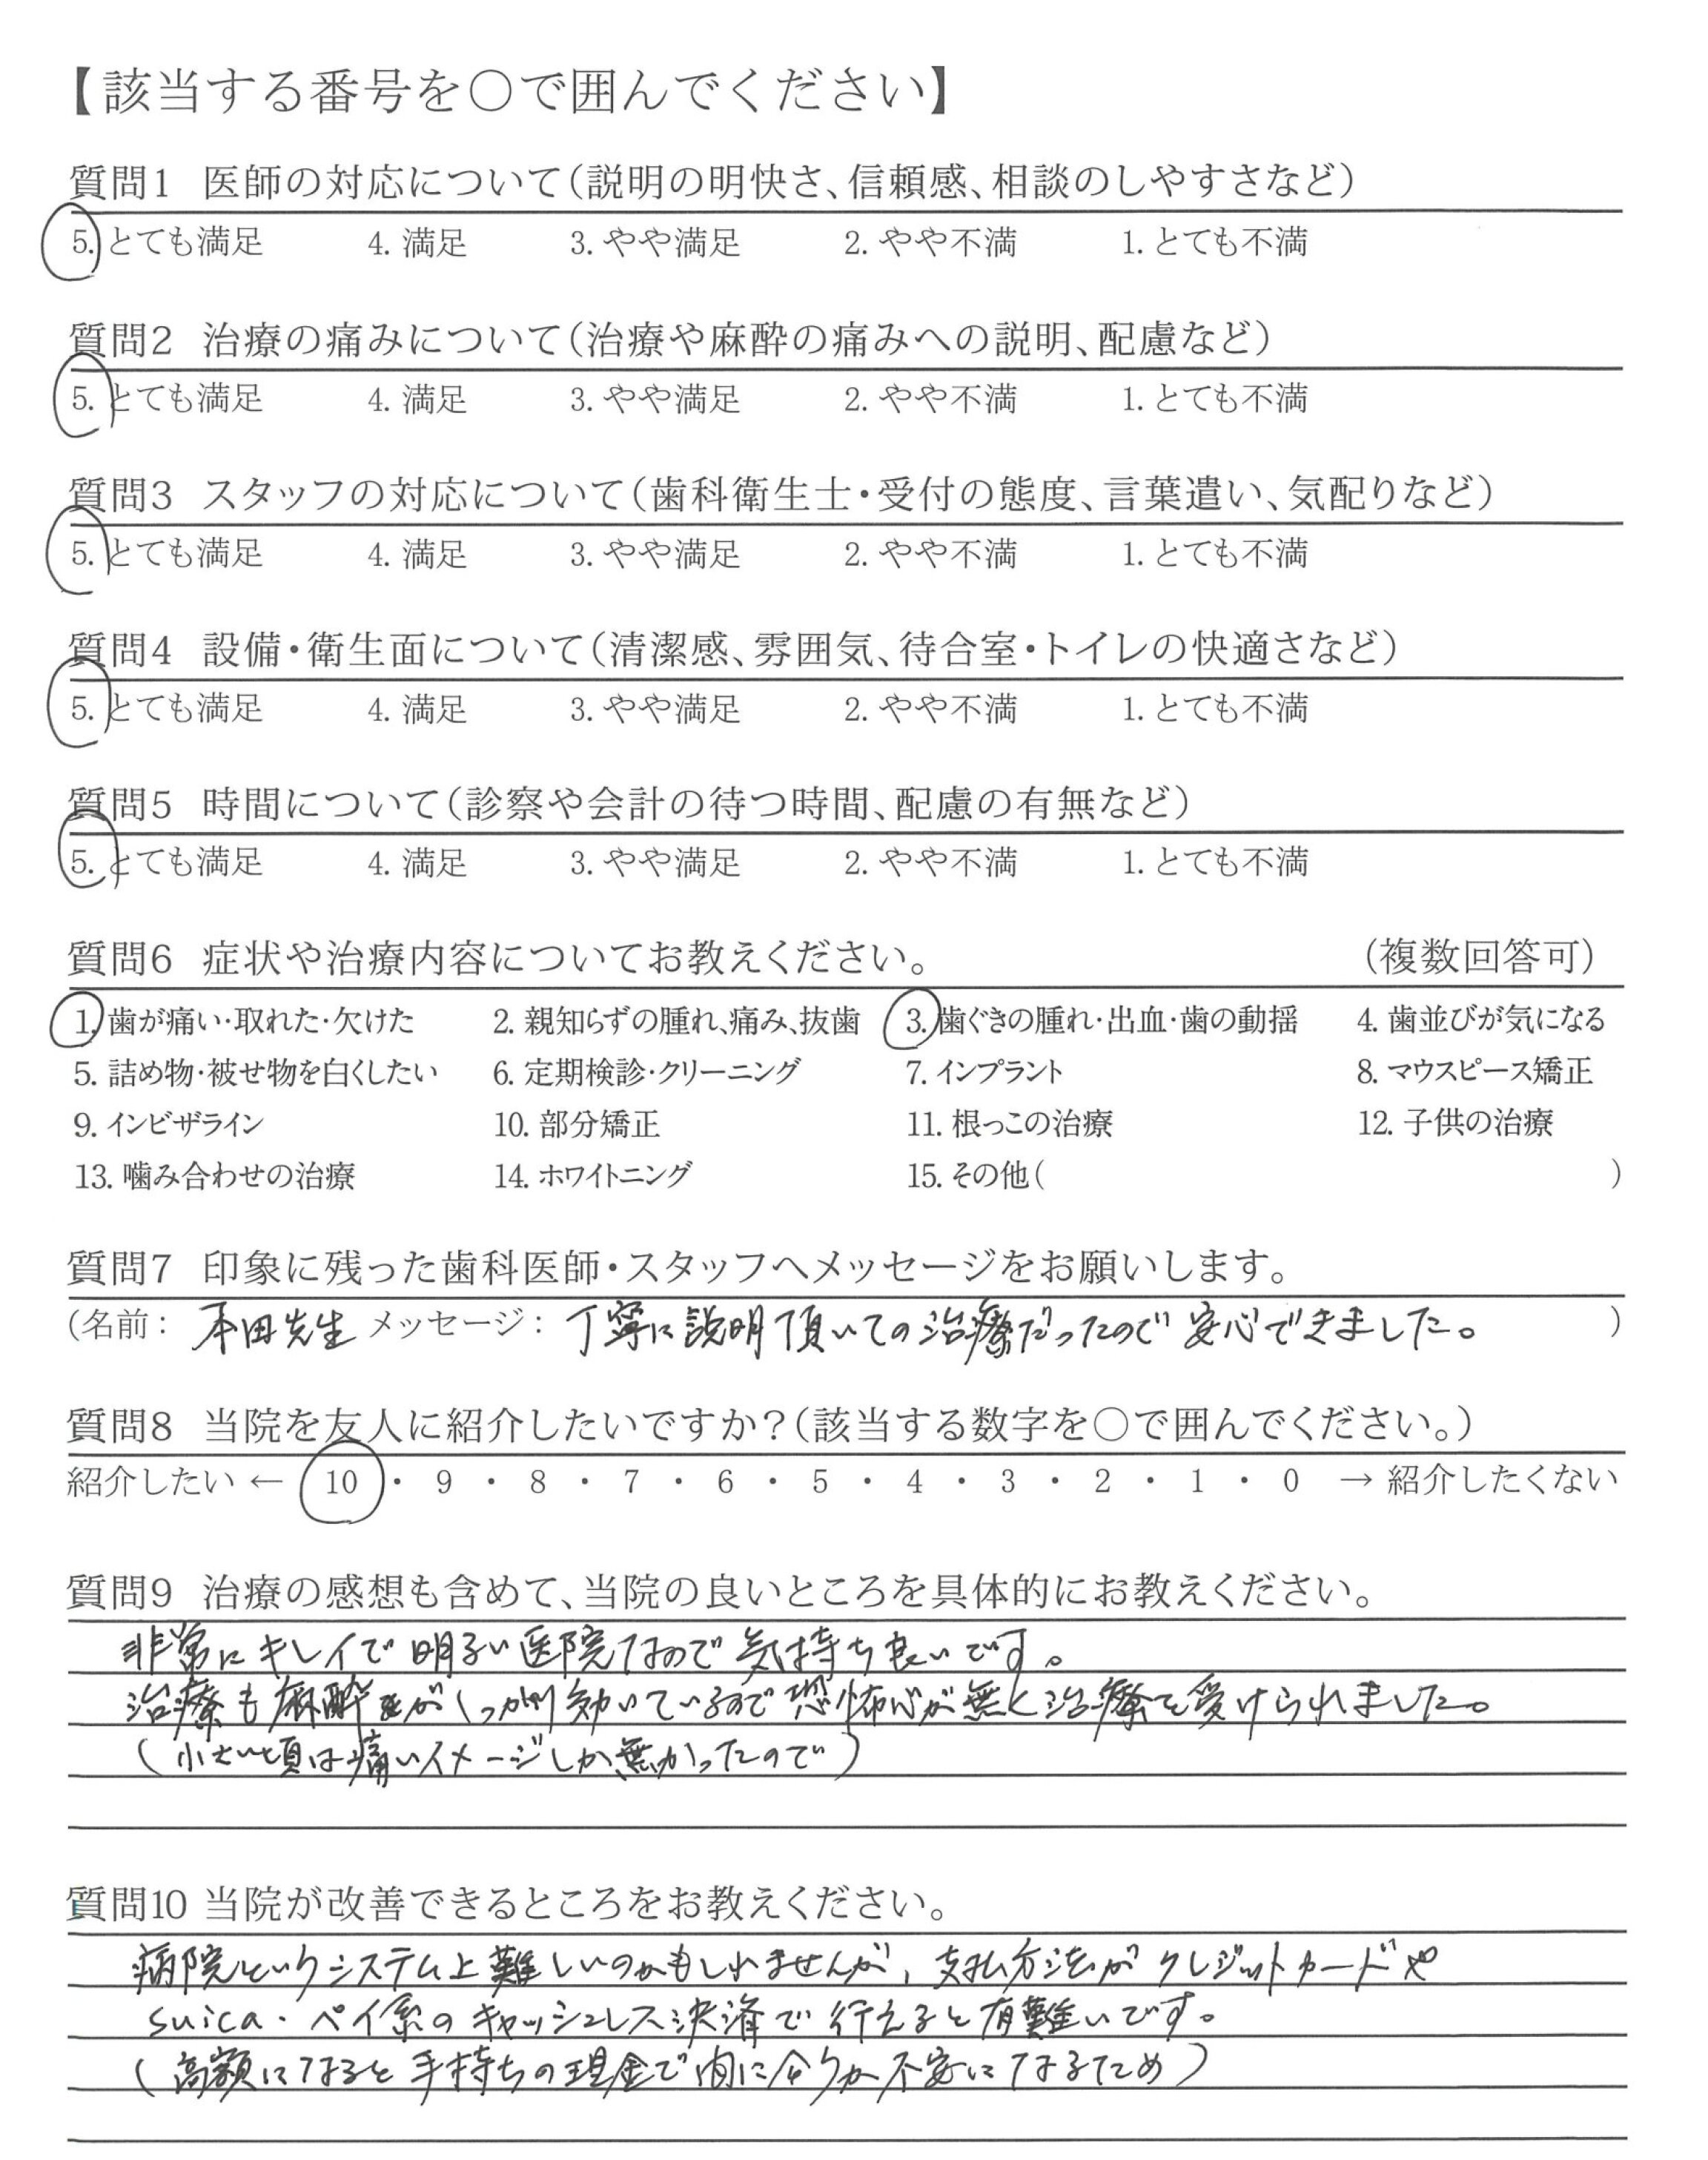 【該当する番号を○で囲んでください】
質問1 医師の対応について(説明の明快さ、信頼感、相談のしやすさなど)
5. とても満足 4. 満足 3. やや満足 2. やや不満 1. とても不満
質問2 治療の痛みについて(治療や麻酔の痛みへの説明、配慮など)
5. とても満足 4. 満足 3. やや満足 2. やや不満 1. とても不満
質問3 スタッフの対応について(歯科衛生士・受付の態度、言葉遣い、気配りなど)
5. とても満足 4. 満足 3. やや満足 2. やや不満 1. とても不満
質問4 設備・衛生面について(清潔感、雰囲気、待合室・トイレの快適さなど)
5. とても満足 4. 満足 3. やや満足 2. やや不満 1. とても不満
質問5 時間について(診察や会計の待つ時間、配慮の有無など)
5. とても満足 4. 満足 3. やや満足 2. やや不満 1. とても不満
質問6 症状や治療内容についてお教えください。 (複数回答可)
1. 歯が痛い・取れた・欠けた 2. 親知らずの腫れ、痛み、抜歯 3. 歯ぐきの腫れ・出血・歯の動揺 4. 歯並びが気になる
5. 詰め物・被せ物を白くしたい 6. 定期検診・クリーニング 7. インプラント 8. マウスピース矯正
9. インビザライン 10. 部分矯正 11. 根っこの治療 12. 子供の治療
13. 噛み合わせの治療 14. ホワイトニング 15. その他( )
質問7 印象に残った歯科医師・スタッフへメッセージをお願いします。
(名前: 本田先生 メッセージ: 丁寧に説明頂いての治療だったので安心できました。 )
質問8 当院を友人に紹介したいですか?(該当する数字を○で囲んでください。)
紹介したい ← 10 ・ 9 ・ 8 ・ 7 ・ 6 ・ 5 ・ 4 ・ 3 ・ 2 ・ 1 ・ 0 → 紹介したくない
質問9 治療の感想も含めて、当院の良いところを具体的にお教えください。
非常にキレイで明るい医院なので気持ち良いです。
治療も麻酔がしっかり効いているので恐怖心が無く治療を受けられました。
(小さい頃は痛いイメージしか無かったので)
質問10 当院が改善できるところをお教えください。
病院というシステム上難しいのかもしれませんが、支払方法がクレジットカードや
suica・ペイ系のキャッシュレス決済で行えると有難いです。
(高額になると手持ちの現金で間に合うか不安になるため)